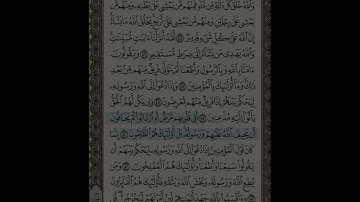 وَٱللَّهُ خَلَقَ كُلَّ دَآبَّةٍ مِّن مَّآءٍ فَمِنْهُم مَّن يَمْشِى عَلَىٰ بَطْنِهِۦ وَمِنْهُم مَّن
يَمْشِى عَلَىٰ رِجْلَيْنِ وَمِنْهُم مَّن يَمْشِى عَلَىٰٓ أَرْبَعٍ يَخْلُقُ ٱللَّهُ مَا يَشَآءُ
إِنَّ ٱللَّهَ عَلَىٰ كُلِّ شَىْءٍ قَدِيرٌ ٤٥ لَّقَدْ أَنزَلْنَآ ءَايَٰتٍ مُّبَيِّنَٰتٍ
وَٱللَّهُ يَهْدِى مَن يَشَآءُ إِلَىٰ صِرَٰطٍ مُّسْتَقِيمٍ ٤٦ وَيَقُولُونَ
ءَامَنَّا بِٱللَّهِ وَبِٱلرَّسُولِ وَأَطَعْنَا ثُمَّ يَتَوَلَّىٰ فَرِيقٌ مِّنْهُم مِّنۢ بَعْدِ ذَٰلِكَ
وَمَآ أُو۟لَٰٓئِكَ بِٱلْمُؤْمِنِينَ ٤٧ وَإِذَا دُعُوٓا۟ إِلَى ٱللَّهِ وَرَسُولِهِۦ
لِيَحْكُمَ بَيْنَهُمْ إِذَا فَرِيقٌ مِّنْهُم مُّعْرِضُونَ ٤٨ وَإِن يَكُن لَّهُمُ ٱلْحَقُّ
يَأْتُوٓا۟ إِلَيْهِ مُذْعِنِينَ ٤٩ أَفِى قُلُوبِهِم مَّرَضٌ أَمِ ٱرْتَابُوٓا۟ أَمْ يَخَافُونَ
أَن يَحِيفَ ٱللَّهُ عَلَيْهِمْ وَرَسُولُهُۥ بَلْ أُو۟لَٰٓئِكَ هُمُ ٱلظَّٰلِمُونَ ٥٠ إِنَّمَا
كَانَ قَوْلَ ٱلْمُؤْمِنِينَ إِذَا دُعُوٓا۟ إِلَى ٱللَّهِ وَرَسُولِهِۦ لِيَحْكُمَ بَيْنَهُمْ أَن
يَقُولُوا۟ سَمِعْنَا وَأَطَعْنَا وَأُو۟لَٰٓئِكَ هُمُ ٱلْمُفْلِحُونَ ٥١ وَمَن
يُطِعِ ٱللَّهَ وَرَسُولَهُۥ وَيَخْشَ ٱللَّهَ وَيَتَّقْهِ فَأُو۟لَٰٓئِكَ هُمُ ٱلْفَآئِزُونَ